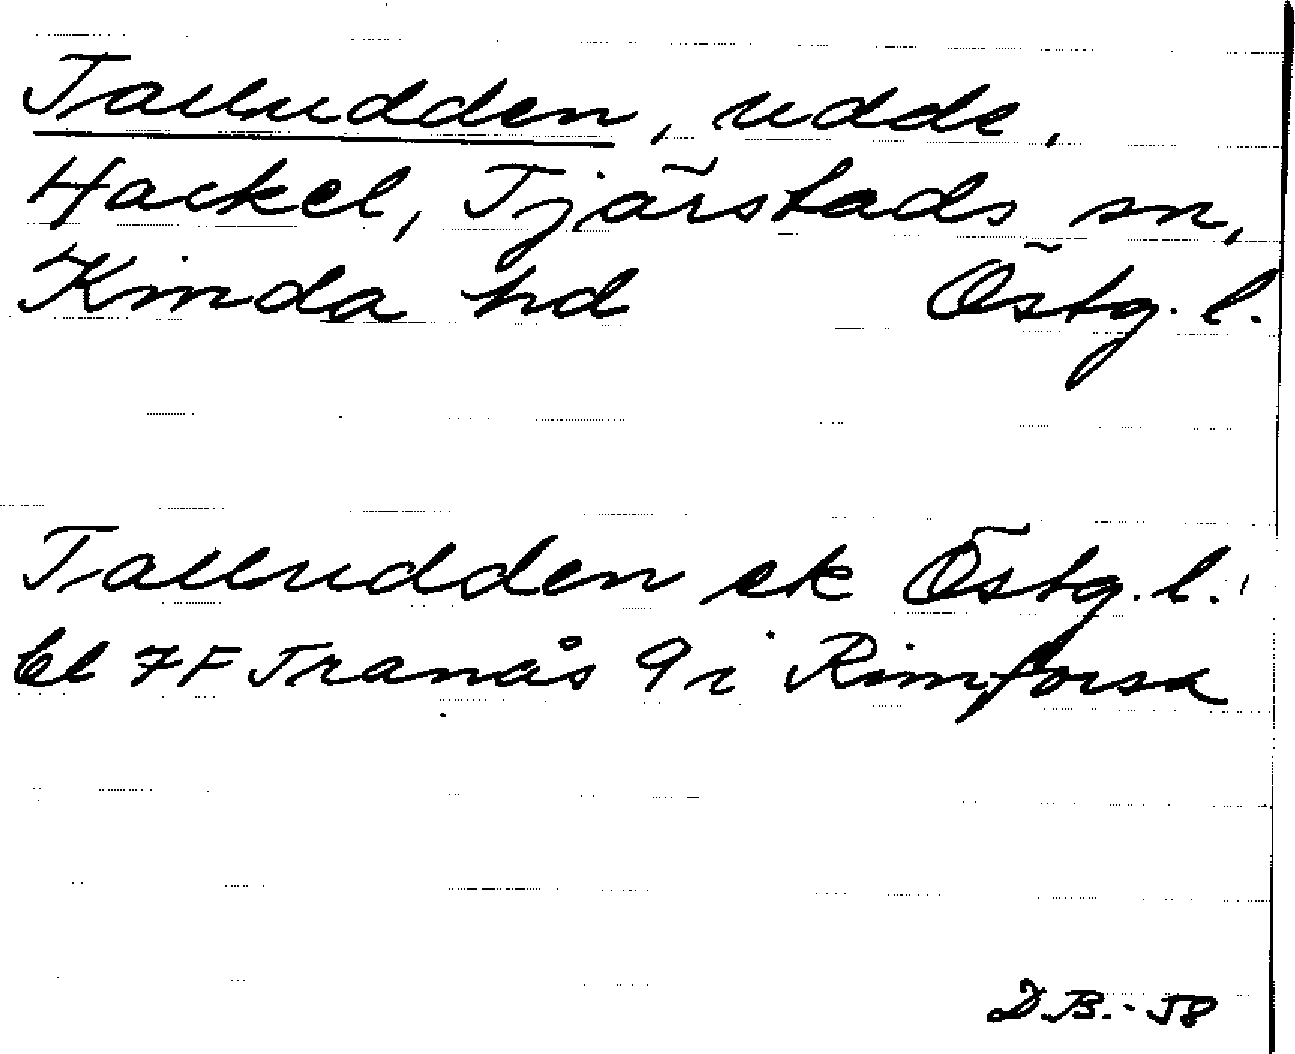 Talludden, udde,
Hackel, Tjärstads sn,
Kinda hd Östg. l.
Talludden ek Östg. l.
bl 7F Tranås 9 i Rimforsa
D.B.-58